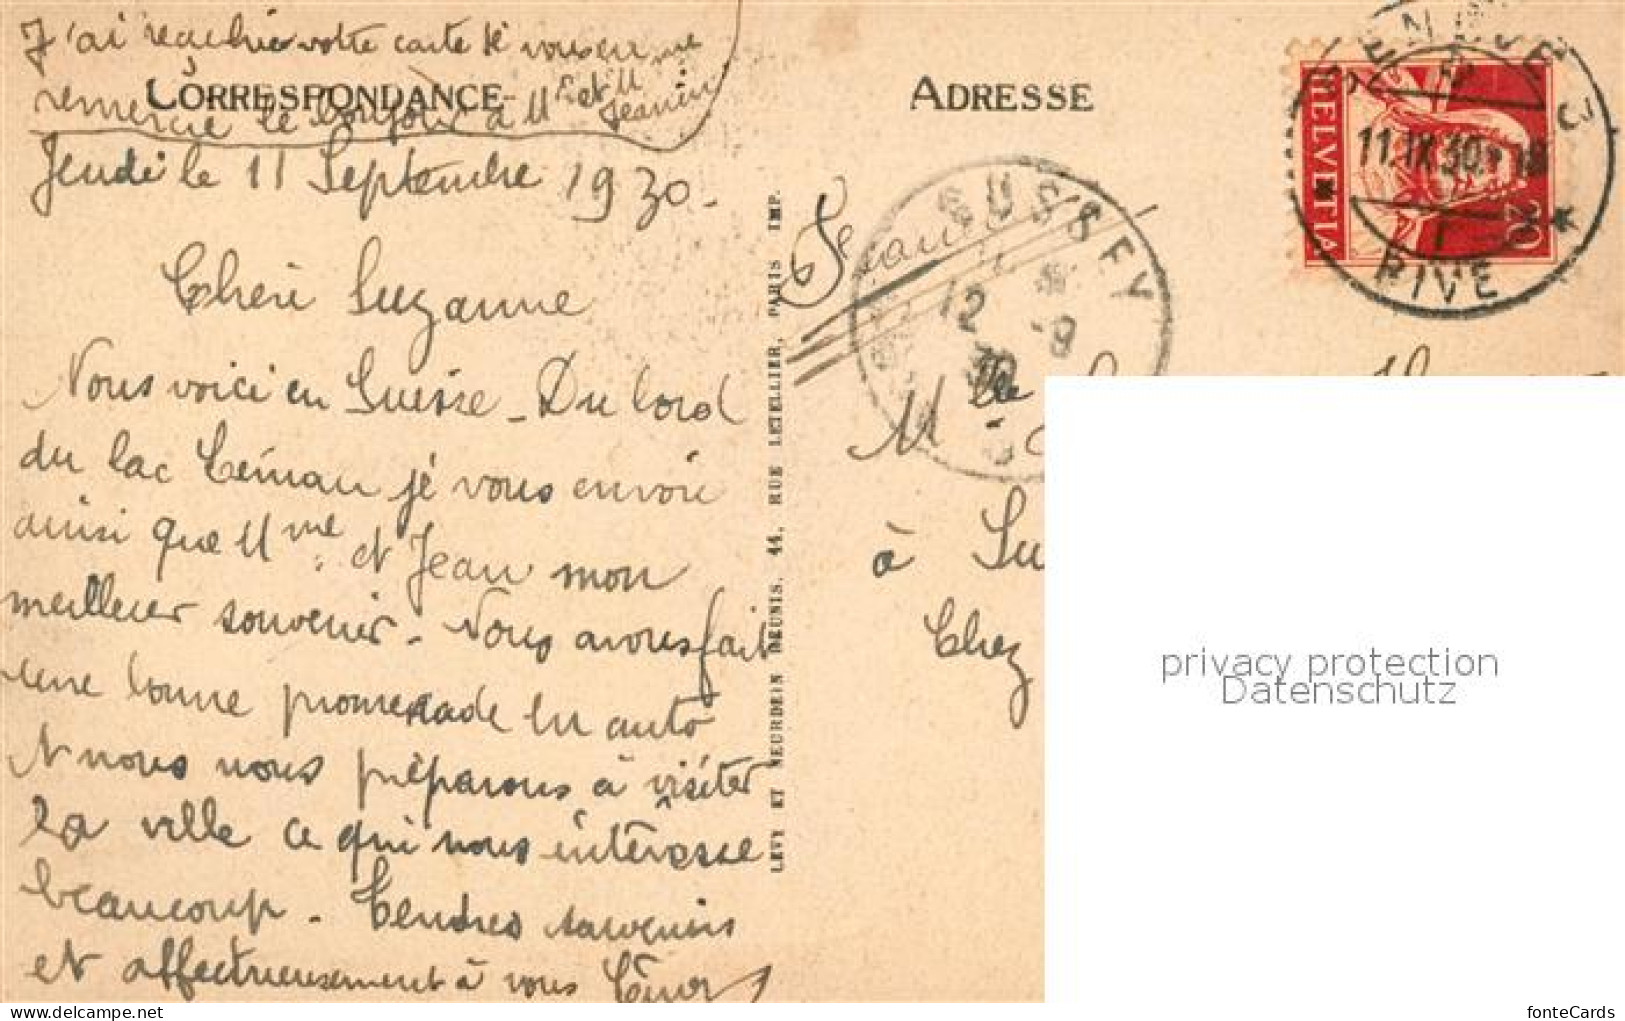 J'ai reçu hier votre carte je vous en
remercie le bonjour à Mme et M Jeanin
CORRESPONDANCE
Jeudi le 11 Septembre 1930.
Chère Suzanne
Nous voici en Suisse - Du bord
du lac Léman je vous envoie
ainsi que Mme et Jean mon
meilleur souvenir - Nous avons fait
une bonne promenade en auto
et nous nous préparons à visiter
la ville ce qui nous intéresse
beaucoup - Tendres souvenirs
et affectueusement à vous
LEVY ET NEURDEIN REUNIS, 44, RUE LETELLIER, PARIS IMP.
ADRESSE
HELVETIA
20
GENEVE 3
11.IX.30
RIVE
SUSSEY
12 -9
30
Mlle
à Su
Chez
privacy protection
Datenschutz
www.delcampe.net
tintin.ch
fonteCards